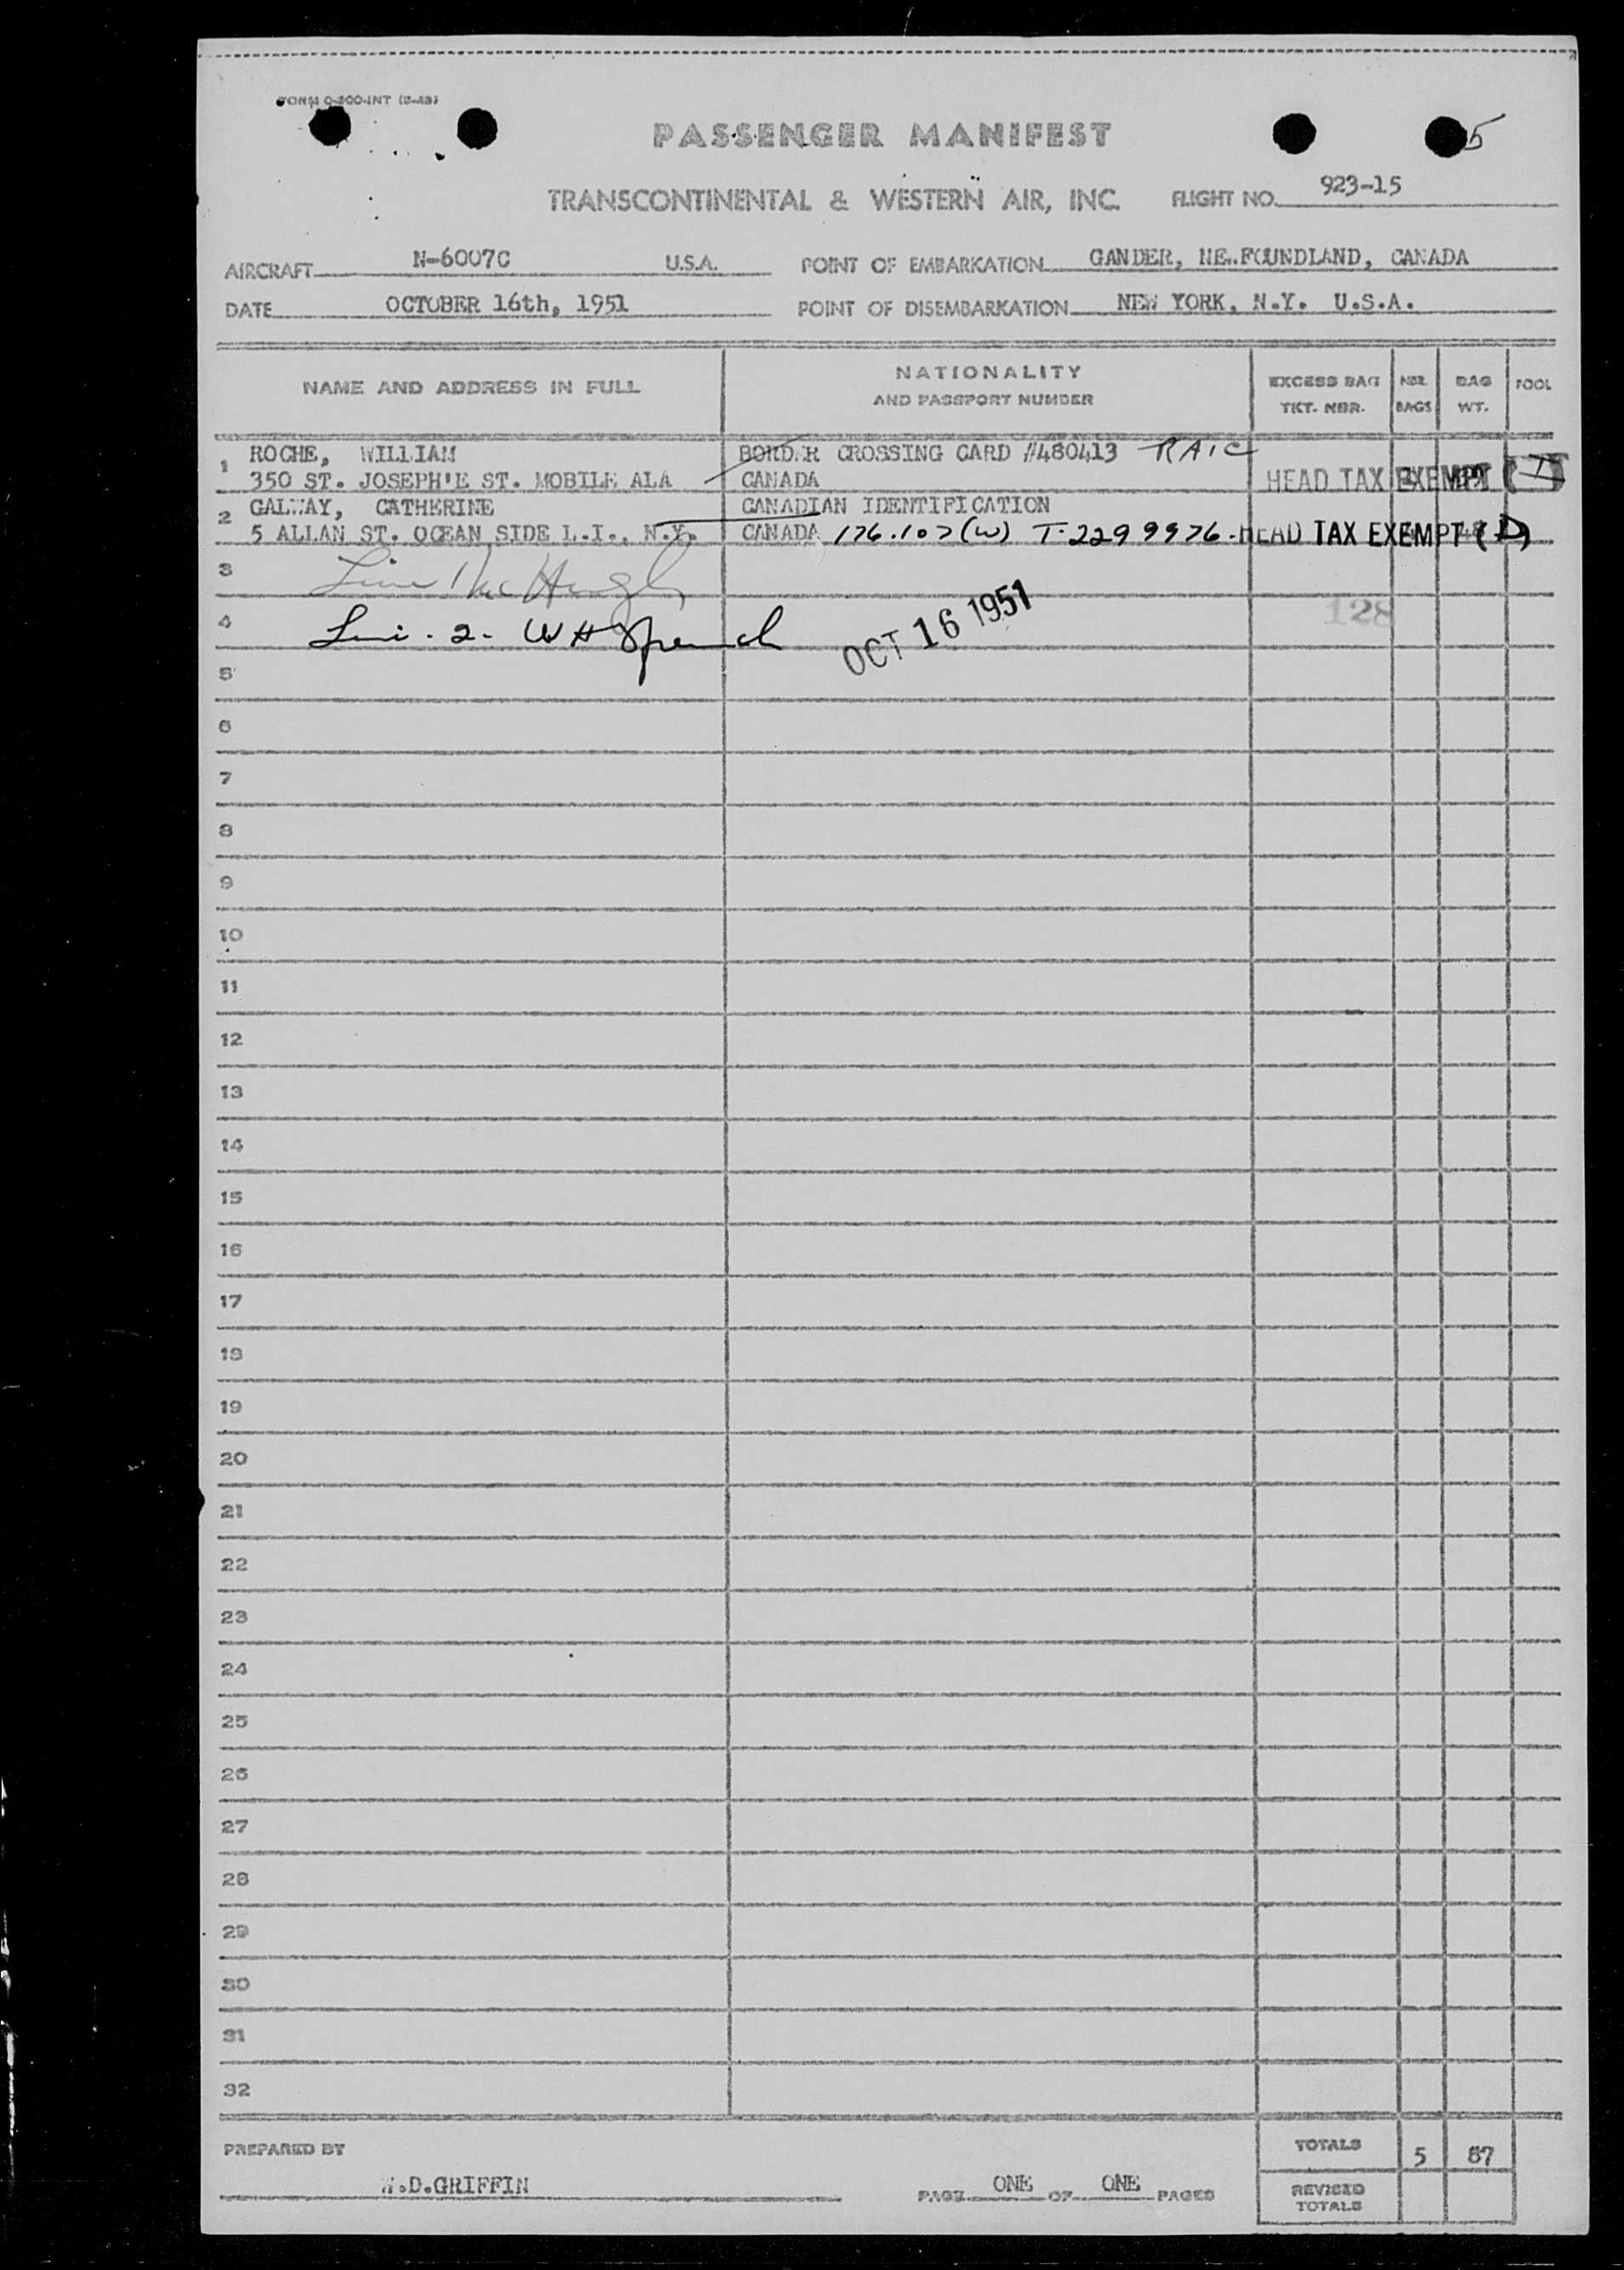 FORM 0-300-INT (8-48)
PASSENGER MANIFEST
5
TRANSCONTINENTAL & WESTERN AIR, INC. FLIGHT NO. 923-15
AIRCRAFT N-6007C U.S.A. POINT OF EMBARKATION GANDER, NEWFOUNDLAND, CANADA
DATE OCTOBER 16th, 1951 POINT OF DISEMBARKATION NEW YORK, N.Y. U.S.A.
NAME AND ADDRESS IN FULL NATIONALITY AND PASSPORT NUMBER EXCESS BAG TKT. NBR. NBR. BAGS BAG WT. POOL
1 ROCHE, WILLIAM BORDER CROSSING CARD #480413 RAIC
350 ST. JOSEPH'E ST. MOBILE ALA CANADA HEAD TAX EXEMPT (I)
2 GALWAY, CATHERINE CANADIAN IDENTIFICATION
5 ALLAN ST. OCEAN SIDE L.I., N.Y. CANADA 176.107(W) T-2299976. HEAD TAX EXEMPT (D)
3
4 128
OCT 16 1951
5
6
7
8
9
10
11
12
13
14
15
16
17
18
19
20
21
22
23
24
25
26
27
28
29
30
31
32
PREPARED BY TOTALS 5 87
W.D.GRIFFIN PAGE ONE OF ONE PAGES REVISED TOTALS